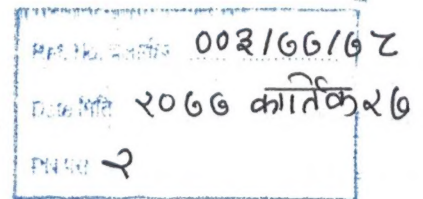 Ref. No. ००३/७७/७८
Date मिति २०७७ कार्तिक २७
२